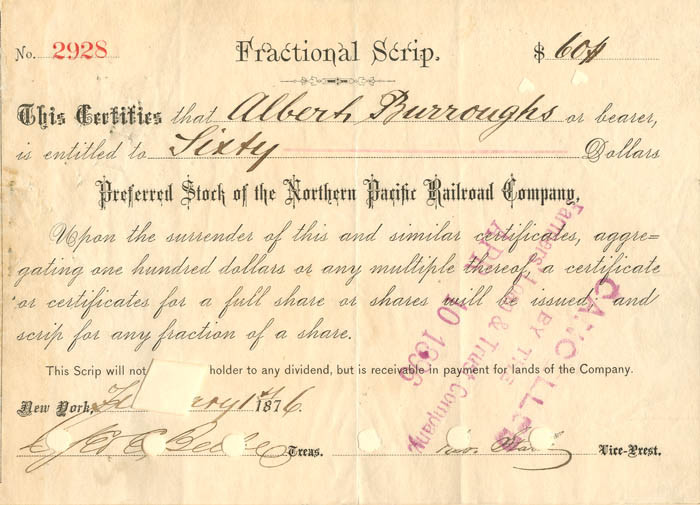 No. 2928 Fractional Scrip. $ 60
This Certifies that Albert Burroughs or bearer,
is entitled to Sixty Dollars
Preferred Stock of the Northern Pacific Railroad Company.
Upon the surrender of this and similar certificates, aggre=
gating one hundred dollars or any multiple thereof, a certificate
or certificates for a full share or shares will be issued, and
scrip for any fraction of a share.
This Scrip will not holder to any dividend, but is receivable in payment for lands of the Company.
New York, 1876.
Treas. Vice-Prest.
CANCELLED
BY THE
Farmers' Loan & Trust Company.
APR 10 1896